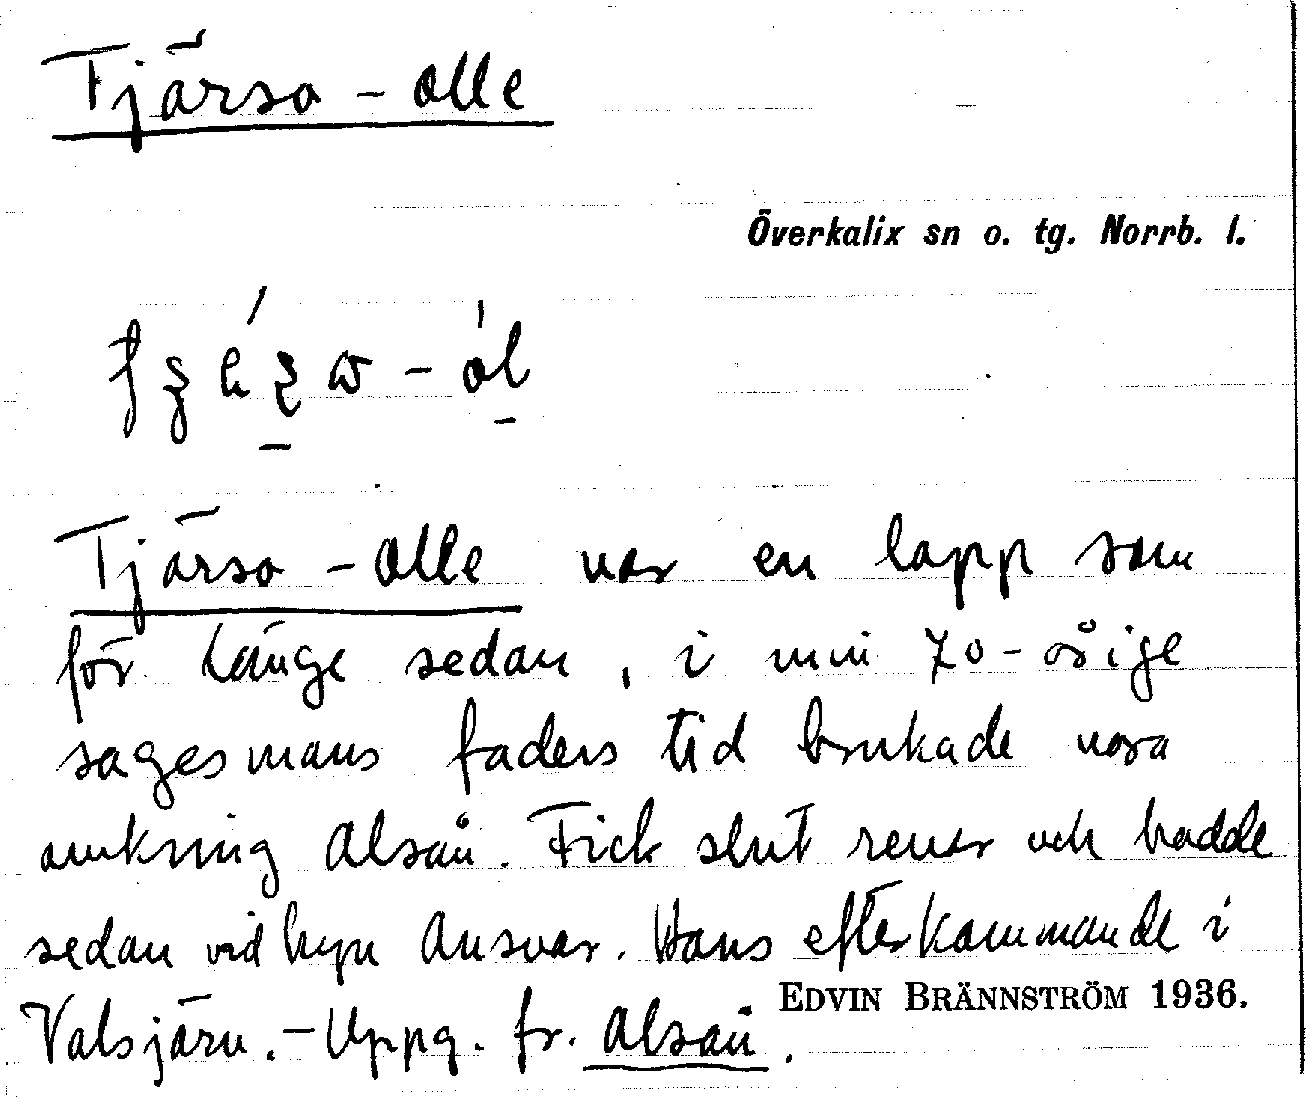 Tjärso - Olle
Överkalix sn o. tg. Norrb. l.
Tjärso - Olle var en lapp som
för länge sedan, i min 70-årige
sagesmans faders tid brukade vara
omkring Alsån. Fick slut renar och hade
sedan vid byn Ansvar. Hans efterkommande i
Valsjärv. - Uppg. fr. Alsån.
EDVIN BRÄNNSTRÖM 1936.